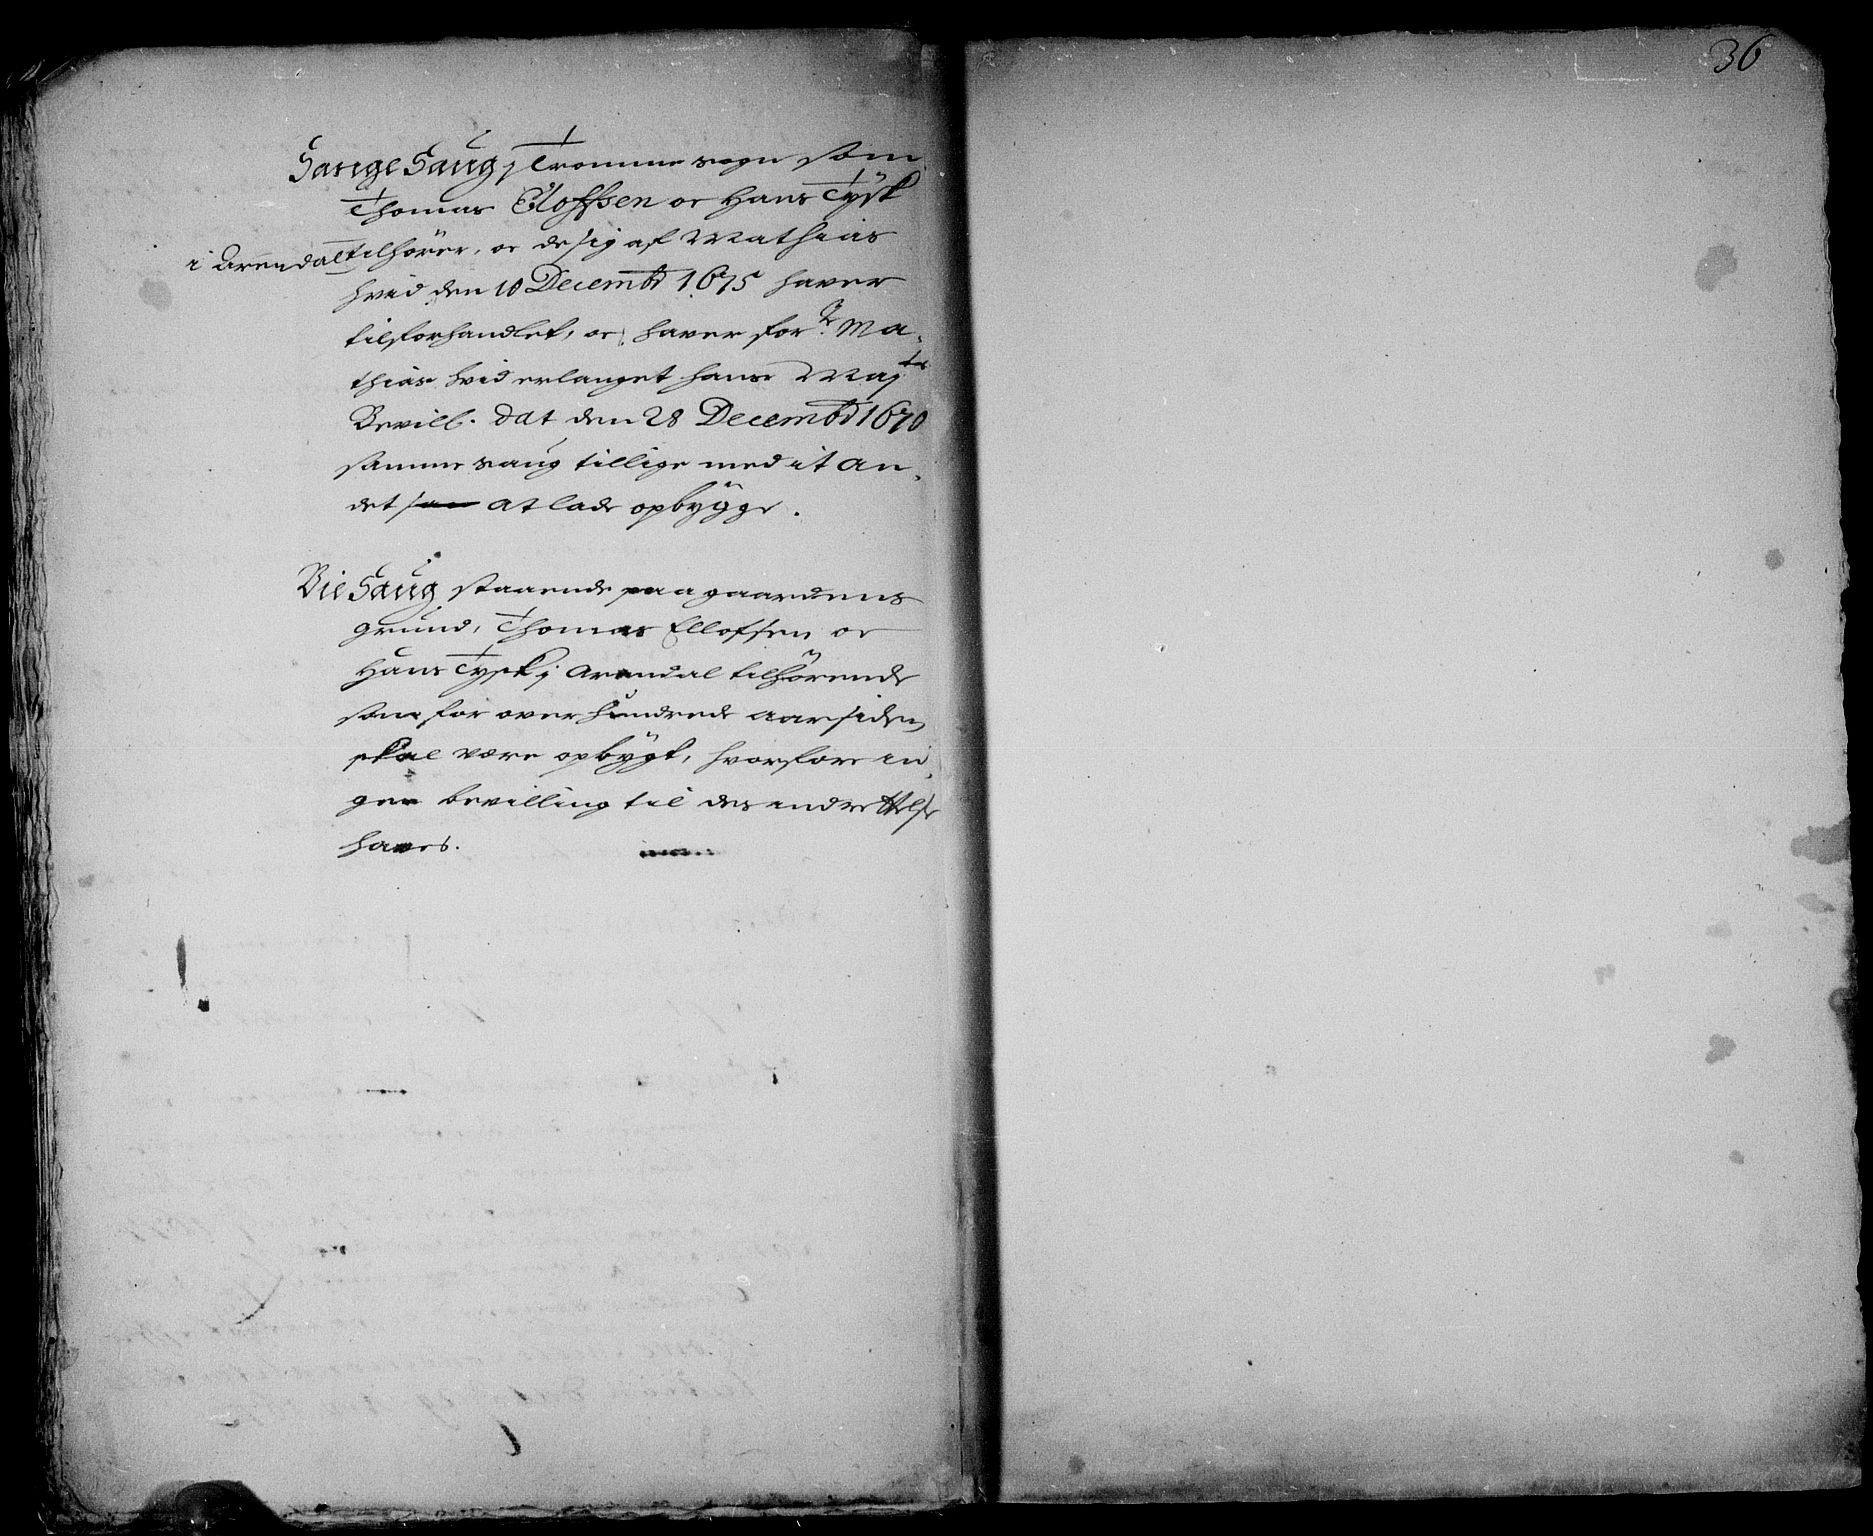 36
Sange Saug j Tromme sogn som
Thomas Eloffsen oc Hans Tysk
i Arendal tilhører, oc de sig af Mathias
hvid den 10 Decembr 1675 haver
tilforhandlet, oc haver forne Ma-
thias hvid erlanget hans Majts
Bevill. dat den 28 Decembr 1670
samme saug tillige med it an-
det at lade opbygge.
Vie Saug staaende paa gaardens
grund, Thomas Ellofsen oc
Hans Tysk j Arendal tilhørende
som for over hundrede aar siden
skal være opbygt, hvorfore in-
gen bevilling til des indrettelse
haves.